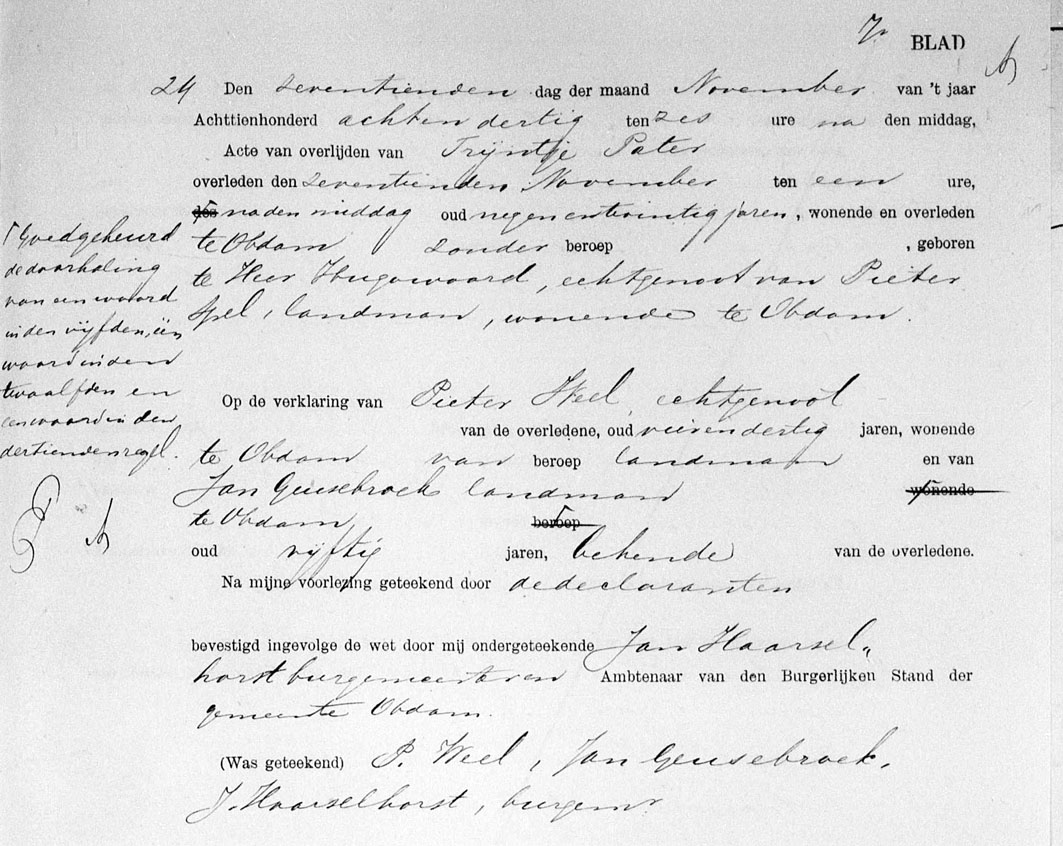 7e BLAD
24 Den zeventienden dag der maand November van 't jaar
Achttienhonderd achtendertig ten zes ure na den middag,
Acte van overlijden van Trijntje Pater
overleden den zeventienden November ten een ure,
des na den middag oud negenentwintig jaren, wonende en overleden
te Obdam zonder beroep , geboren
te Heer Hugowaard, echtgenoot van Pieter
Wel, landman, wonende te Obdam.
Goedgekeurd
de doorhaling
van een woord
in den vijfden, één
woord in den
twaalfden en
een woord in den
dertienden regel.
Op de verklaring van Pieter Weel, echtgenoot
van de overledene, oud vierendertig jaren, wonende
te Obdam van beroep landman en van
Jan Geusebroek landman wonende
te Obdam beroep
oud vijftig jaren, bekende van de overledene.
Na mijne voorlezing geteekend door de declaranten
bevestigd ingevolge de wet door mij ondergeteekende Jan Haarsel„
horst burgemeester en Ambtenaar van den Burgerlijken Stand der
gemeente Obdam.
(Was geteekend) P. Weel, Jan Geusebroek,
J. Haarselhorst, burgemr